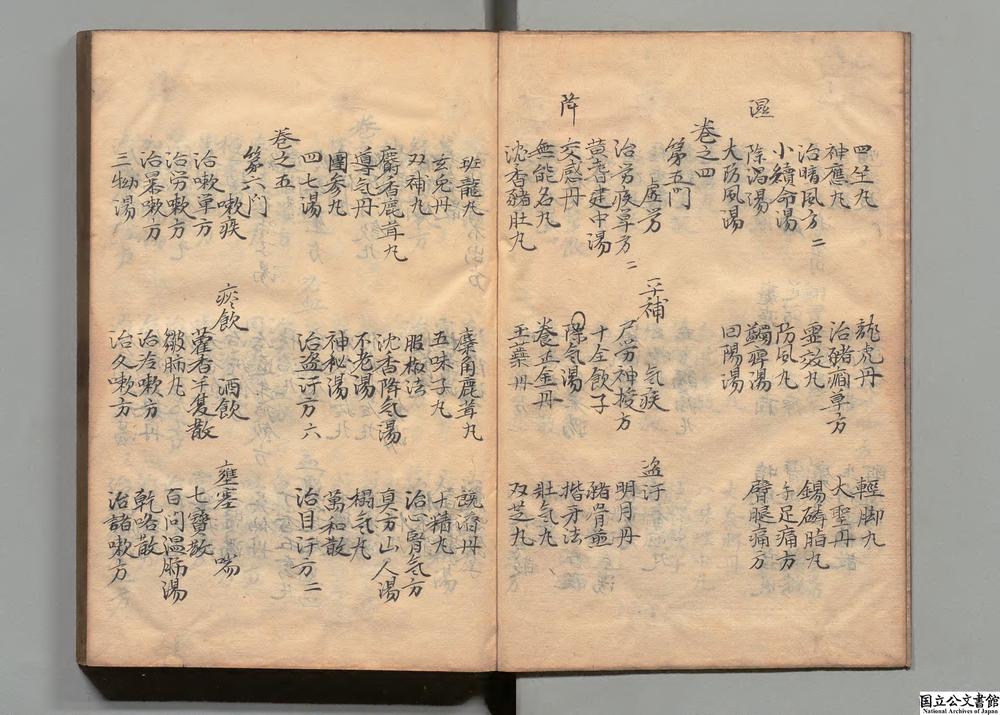 濕
四生丸　龍虎丹　輕脚丸
神應丸　治豬癎單方　大聖丹
治暗風方二　靈效丸　錫磷脂丸
小續命湯　防風丸　手足痛方
除濕湯　蠲痺湯　臂腿痛方
大防風湯　回陽湯
卷之四
第五門　虛労　平補　氣疾　盗汗
治労疾單方二　尸労神授方　明月丹
黄耆建中湯　十全飲子　豬骨煎
降
交感丹　降氣湯　揩牙法
無能名丸　養正金丹　壯氣丸
沈香豬肚丸　玉藥丹　双芝丸
班龍丸　麋角鹿茸丸　既濟丹
玄兎丹　五味子丸　十精丸
双補丸　服椒法　治心腎氣方
麝香鹿茸丸　沈香降氣湯　真方山人湯
導氣丹　不老湯　楬氣丸
團参丸　神秘湯　萬和散
四七湯　治盗汗方六　治目汗方二
卷之五
第六門　嗽疾　痰飲　酒飲　壅塞　喘
治嗽單方　藿香半夏散　七寶散
治労嗽方　皺肺丸　百問温肺湯
治暴嗽方　治冷嗽方　乾咯散
三物湯　治久嗽方　治諸嗽方
国立公文書館
National Archives of Japan